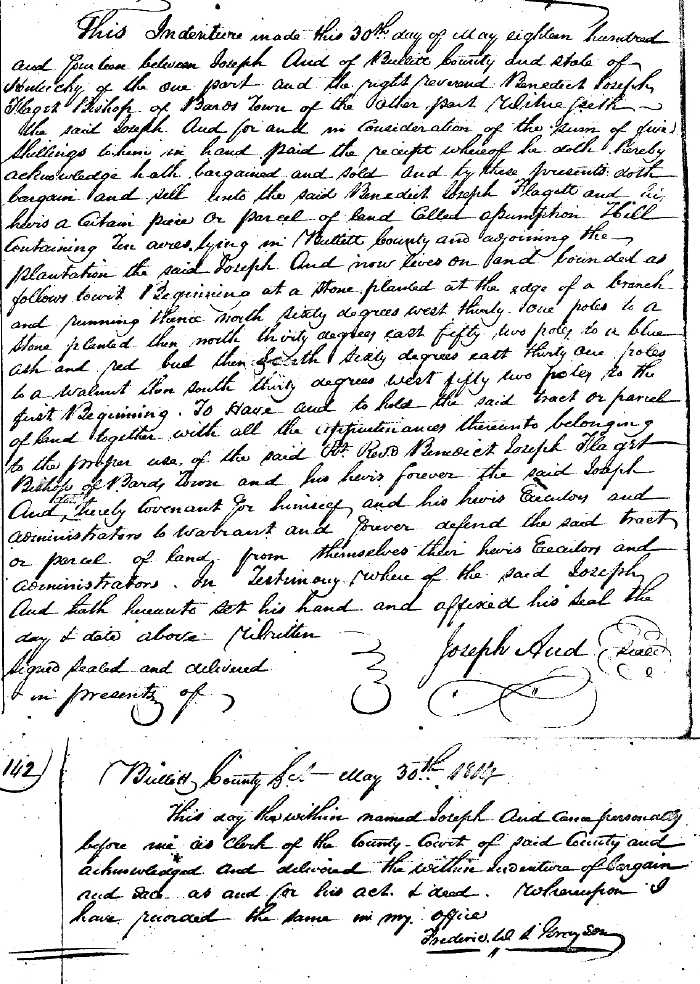 This Indenture made this 30th day of May eighteen hundred
and fourteen between Joseph Aud of Bullitt County and state of
Kentucky of the one part and the right reverend Benedict Joseph
Flaget Bishop of Bards Town of the other part Witnesseth
the said Joseph Aud for and in Consideration of the sum of five
Shillings to him in hand paid the receipt whereof he doth hereby
acknowledge hath bargained and sold and by these presents doth
bargain and sell unto the said Benedict Joseph Flagett and his
heirs a Certain piece or parcel of land Called assumption Hill
Containing Ten acres, lying in Bullitt County and adjoining the
plantation the said Joseph Aud now lives on and bounded as
follows towit Beginning at a stone planted at the edge of a branch
and running thence north sixty degrees west thirty one poles to a
stone planted then north thirty degrees east fifty two poles to a blue
ash and red bud then South sixty degrees east thirty one poles
to a walnut then south thirty degrees west fifty two poles to the
first Beginning. To Have and to hold the said tract or parcel
of land together with all the appurtenances thereunto belonging
to the proper use of the said Rt Revd Benedict Joseph Flaget
Bishop of Bards Town and his heirs forever the said Joseph
Aud doth hereby Covenant for himself and his heirs Executors and
administrators to warrant and forever defend the said tract
or parcel of land from themselves their heirs Executors and
administrators. In Testimony Where of the said Joseph
Aud hath hereunto set his hand and affixed his seal the
day & date above Written
Joseph Aud seal
signed sealed and delivered
in presents of
142
Bullitt County Sct May 30th 1814
This day the within named Joseph Aud came personally
before me as Clerk of the County Court of said County and
acknowledged and delivered the within Indenture of bargain
and sale as and for his act & deed. Whereupon I
have recorded the same in my office
Frederic W S Grayson